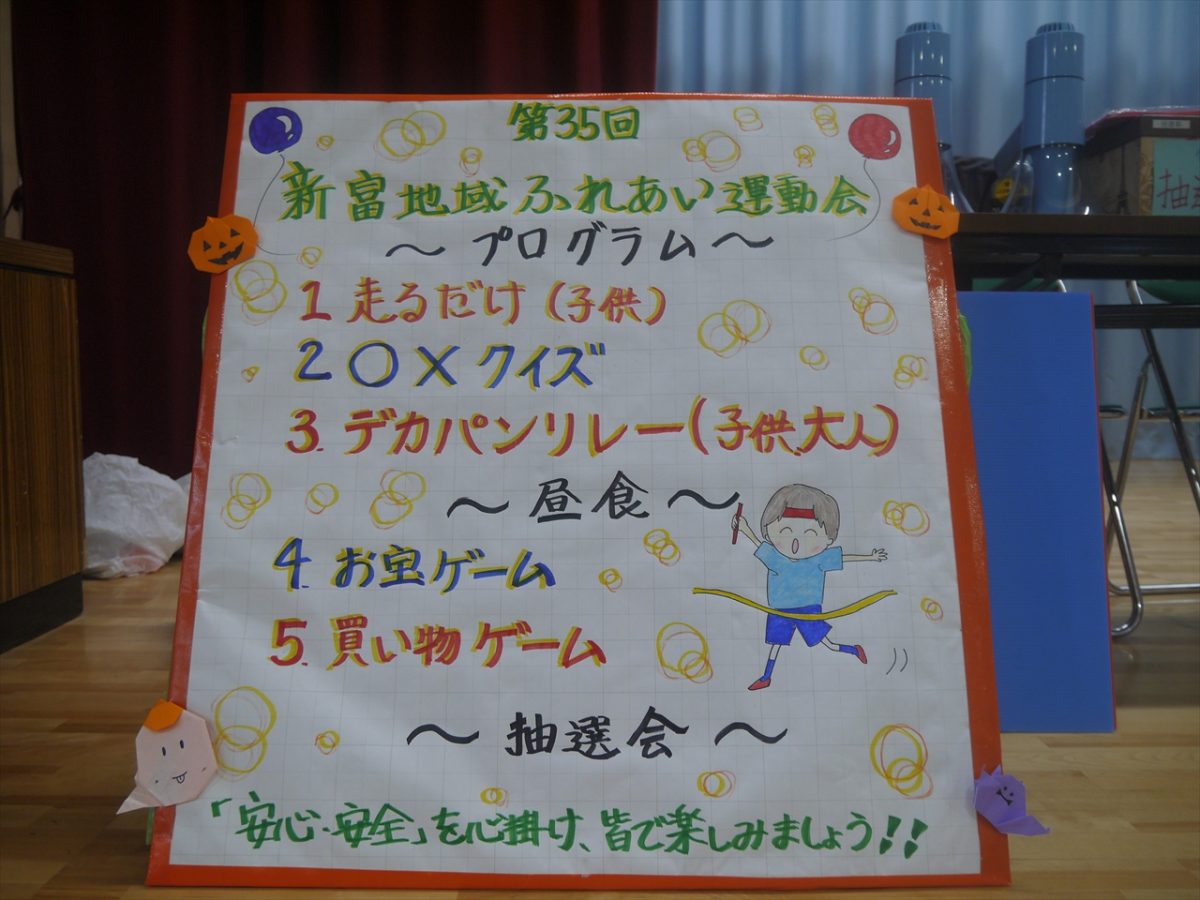 第35回
新富地域ふれあい運動会
～プログラム～
1 走るだけ(子供)
2 〇×クイズ
3. デカパンリレー(子供、大人)
～昼食～
4. お宝ゲーム
5. 買い物ゲーム
～抽選会～
「安心・安全」を心掛け、皆で楽しみましょう!!
抽